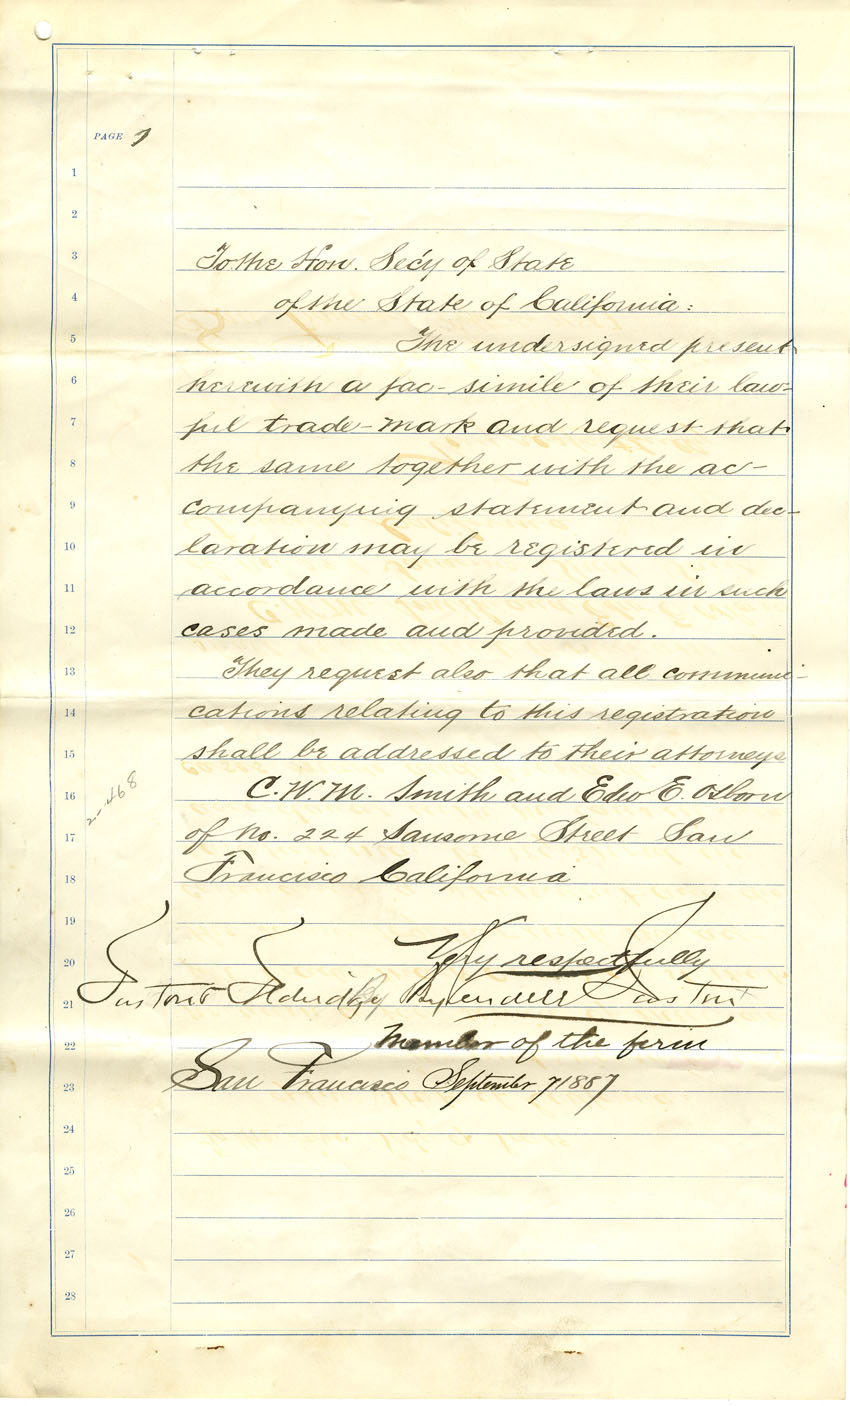 PAGE 1
1
2
3 To the Hon. Sec'y of State
4 of the State of California:
5 The undersigned present
6 herewith a fac-simile of their law=
7 ful trade-mark and request that
8 the same together with the ac-
9 companying statement and dec-
10 laration may be registered in
11 accordance with the laws in such
12 cases made and provided.
13 They request also that all communi-
14 cations relating to this registration
15 shall be addressed to their attorneys
16 C. W. M. Smith and Edw E. Osborn
2-468
17 of No. 224 Sansome Street San
18 Francisco California
19
20 Very respectfully
21 Easton & Eldridge By Wendell Easton
22 Member of the firm
23 San Francisco September 7 1887
24
25
26
27
28